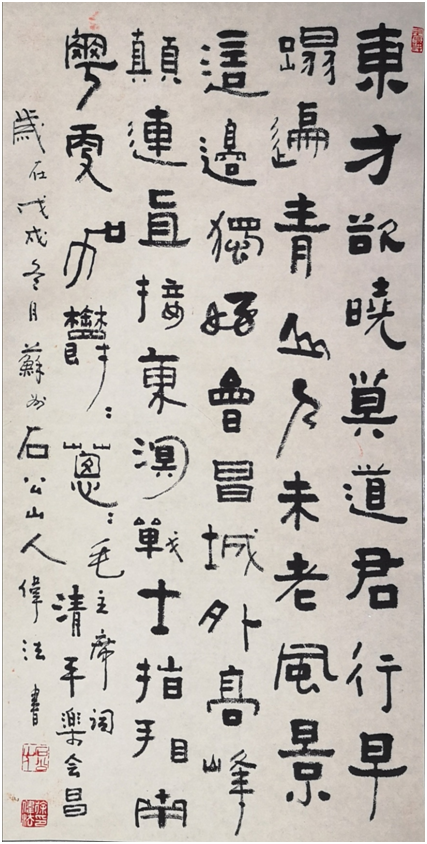 東方欲曉莫道君行早
蹋遍青山人未老風景
這邊獨好會昌城外高峰
顛連直接東溟戰士指看南
粵更加鬱：蔥：毛主席詞
清平樂会昌
歲在戊戌冬月蘇州石公山人偉法書